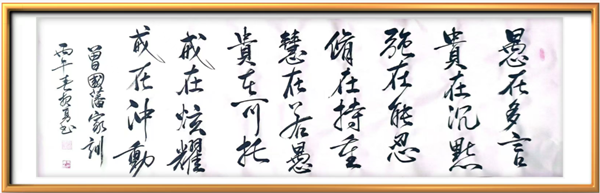 愚在多言
貴在沉默
强在能忍
脩在持重
慧在若愚
貴在可托
戒在炫耀
戒在沖動
曾國藩家訓
丙午春